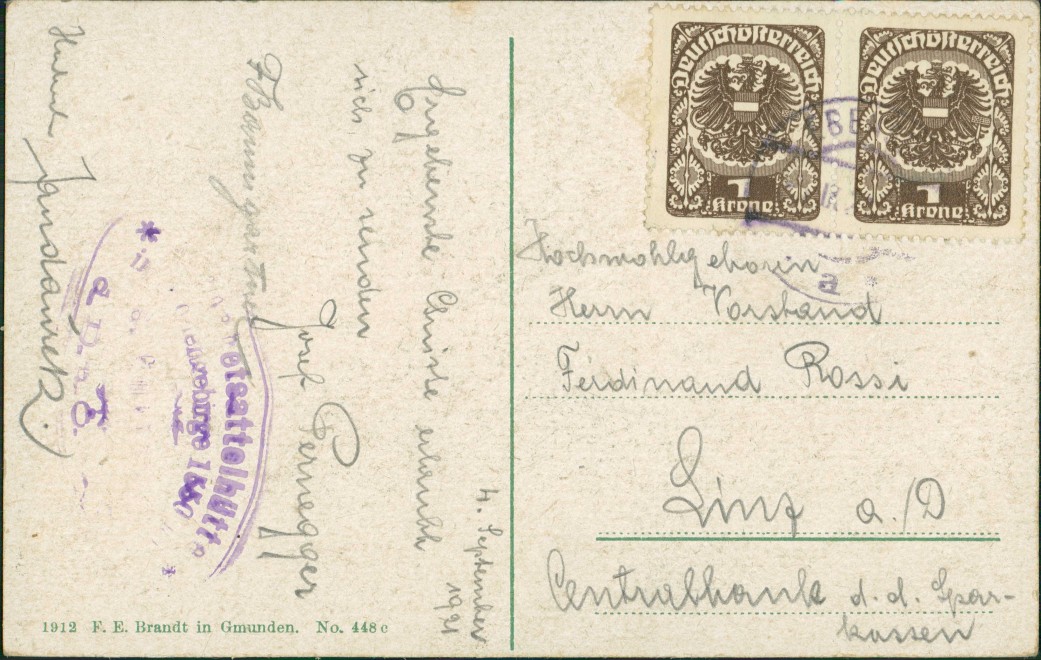 4. September 1921
Ergebenste Grüsse erlaubt
sich zu senden
Josef Pernegger
FBaumgartner
Jandaurek.
Deutschösterreich
1 Krone
Deutschösterreich
1 Krone
EBE
a
Hochwohlgeboren
Herrn Vorstand
Ferdinand Rossi
Linz a./D
Centralbank d. d. Spar-
kassen
1912 F. E. Brandt in Gmunden. No. 448 c